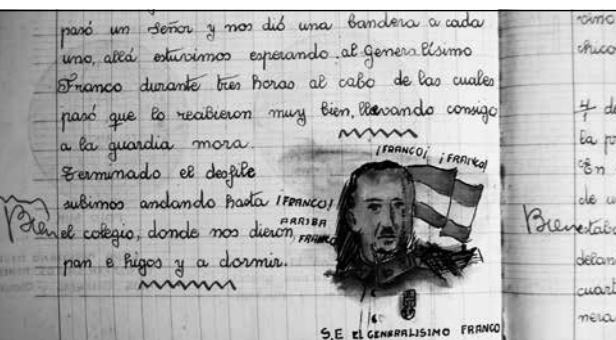 pasó un señor y nos dió una bandera a cada
uno, allá estuvimos esperando al Generalísimo
Franco durante tres horas al cabo de las cuales
pasó que lo recibieron muy bien, llevando consigo
a la guardia mora.
Terminado el desfile
subimos andando hasta
el colegio, donde nos dieron
pan e higos y a dormir.
Bien
¡FRANCO! ¡FRANCO!
¡FRANCO!
ARRIBA
FRANCO
S.E EL GENERALISIMO FRANCO
vino
chico
4 de
la
En
de
Bien
estaba
delan
cuart
nera